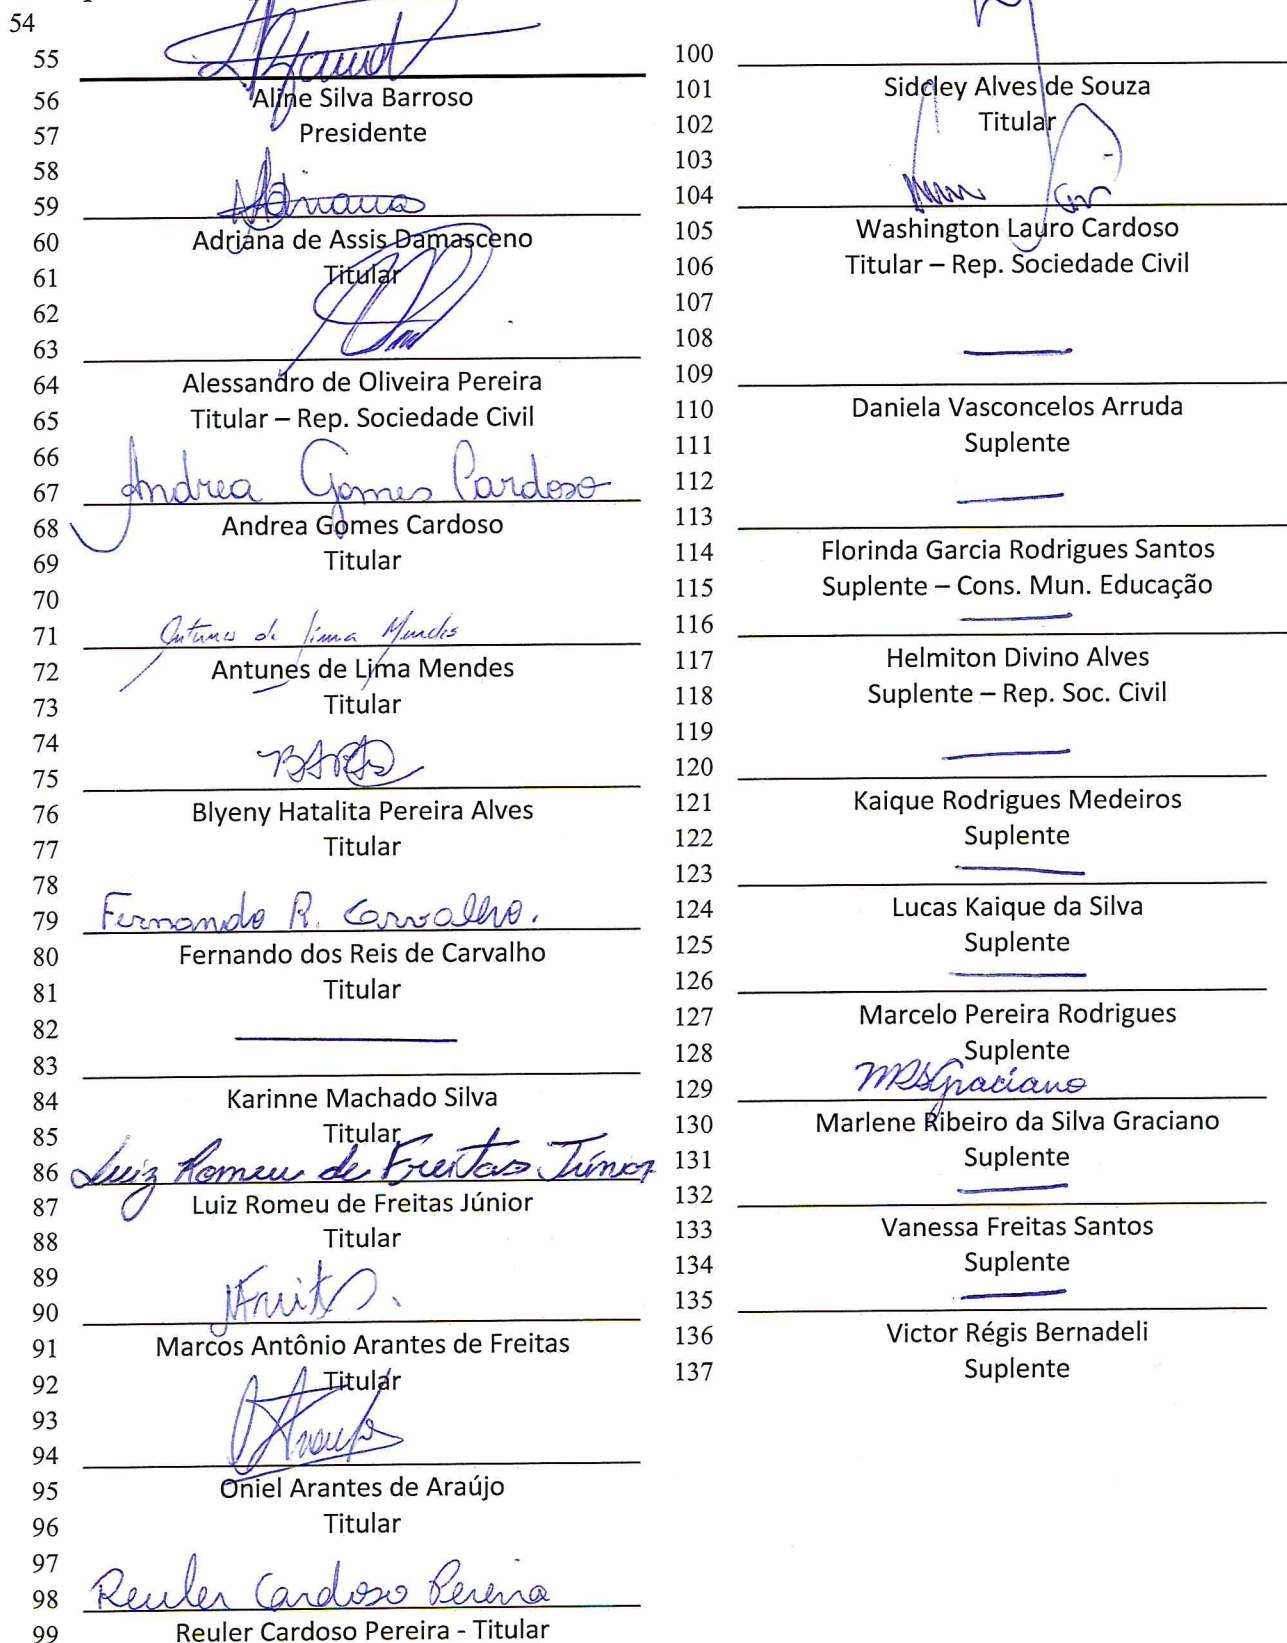 54
55
56 Aline Silva Barroso
57 Presidente
58
59 Adriana
60 Adriana de Assis Damasceno
61 Titular
62
63
64 Alessandro de Oliveira Pereira
65 Titular – Rep. Sociedade Civil
66
67 Andrea Gomes Cardoso
68 Andrea Gomes Cardoso
69 Titular
70
71 Antunes de Lima Mendes
72 Antunes de Lima Mendes
73 Titular
74
75
76 Blyeny Hatalita Pereira Alves
77 Titular
78
79 Fernando R. Carvalho.
80 Fernando dos Reis de Carvalho
81 Titular
82
83
84 Karinne Machado Silva
85 Titular
86 Luiz Romeu de Freitas Júnior
87 Luiz Romeu de Freitas Júnior
88 Titular
89
90
91 Marcos Antônio Arantes de Freitas
92 Titular
93
94
95 Oniel Arantes de Araújo
96 Titular
97
98 Reuler Cardoso Pereira
99 Reuler Cardoso Pereira - Titular
100
101 Siddley Alves de Souza
102 Titular
103
104
105 Washington Lauro Cardoso
106 Titular – Rep. Sociedade Civil
107
108
109
110 Daniela Vasconcelos Arruda
111 Suplente
112
113
114 Florinda Garcia Rodrigues Santos
115 Suplente – Cons. Mun. Educação
116
117 Helmiton Divino Alves
118 Suplente – Rep. Soc. Civil
119
120
121 Kaique Rodrigues Medeiros
122 Suplente
123
124 Lucas Kaique da Silva
125 Suplente
126
127 Marcelo Pereira Rodrigues
128 Suplente
129 MRSGraciano
130 Marlene Ribeiro da Silva Graciano
131 Suplente
132
133 Vanessa Freitas Santos
134 Suplente
135
136 Victor Régis Bernadeli
137 Suplente